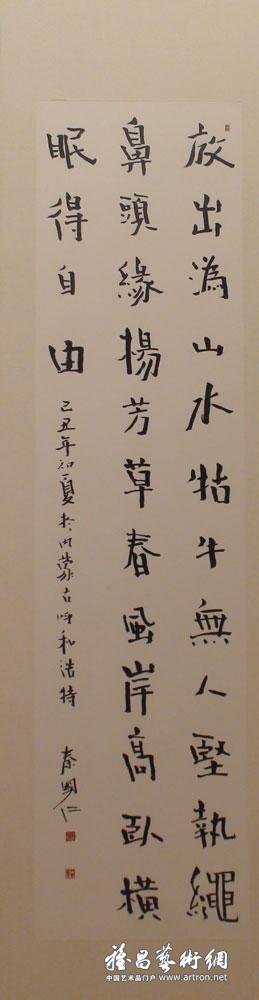 放出溈山水牯牛無人堅執繩
鼻頭緣楊芳草春風岸高臥橫
眠得自由
己丑年初夏於內蒙古呼和浩特
秦國仁
雅昌藝術網
中国艺术品门户 www.artron.net